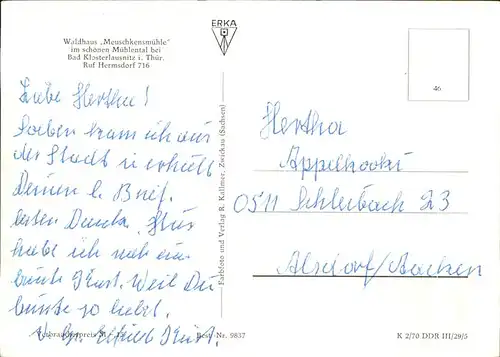 Waldhaus „Meuschkensmühle“
im schönen Mühlental bei
Bad Klosterlausnitz i. Thür.
Ruf Hermsdorf 716
ERKA
46
Liebe Hertha!
Soeben kam ich aus
der Stadt u. erhielt
Deinen l. Brief.
besten Dank. Nun
habe ich noch eine
bunte Karte. Weil Du
bunte so liebst.
V. Gr.
Verbraucherpreis M
Best.-Nr. 9837
Farbfoto und Verlag R. Kallmer, Zwickau (Sachsen)
Hertha
0511 Schleibach 23
Alsdorf/Aachen
K 2/70 DDR III/29/5